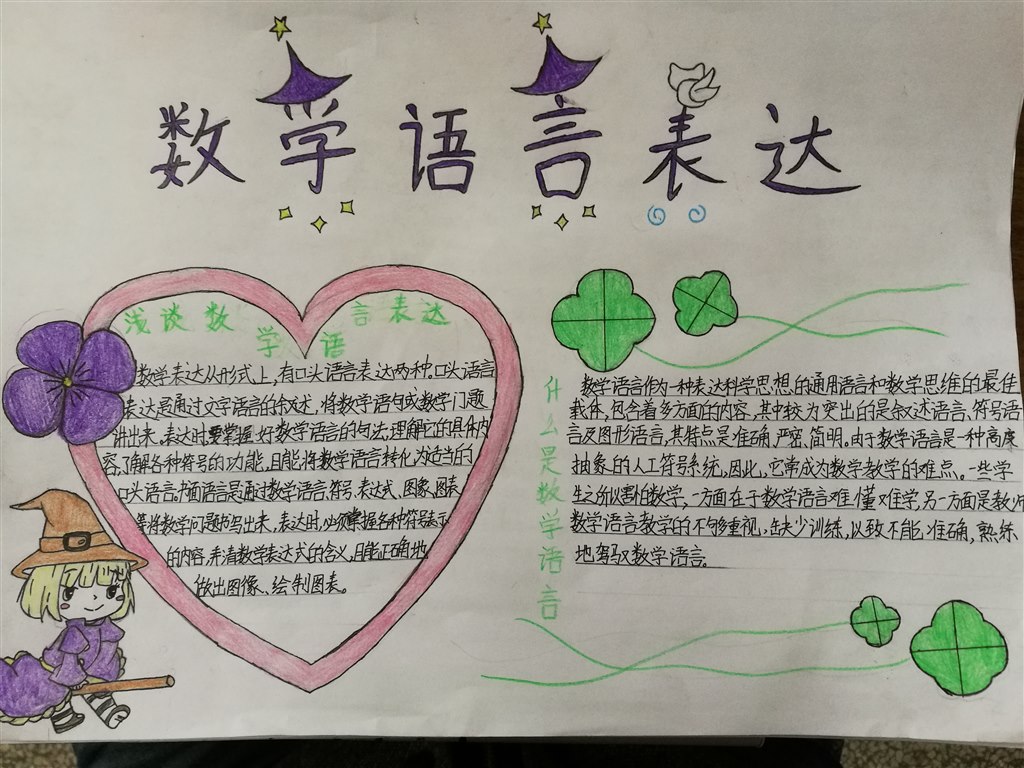 数学语言表达
浅谈数学语言表达
数学表达从形式上,有口头语言表达两种.口头语言
表达是通过文字语言的叙述,将数学语句或数学门题
讲出来.表达时要掌握好数学语言的句法,理解它的具体内
容,了解各种符号的功能,且能将数学语言转化为适当的
口头语言.书面语言是通过数学语言.符号.表达式、图象,图表
等将数学问题书写出来,表达时,必须掌握各种符号表示
的内容,弄清数学表达式的含义,且能正确地
做出图像、绘制图表。
什么是数学语言
数学语言作为一种表达科学思想的通用语言和数学思维的最佳
载体,包含着多方面的内容,其中较为突出的是叙述语言,符号语
言及图形语言,其特点是准确、严密、简明。由于数学语言是一种高度
抽象的人工符号系统,因此,它常成为数学教学的难点。一些学
生之所以害怕数学,一方面在于数学语言难懂难学,另一方面是教师
数学语言教学的不够重视,缺少训练,以致不能准确,熟练
地驾驭数学语言。